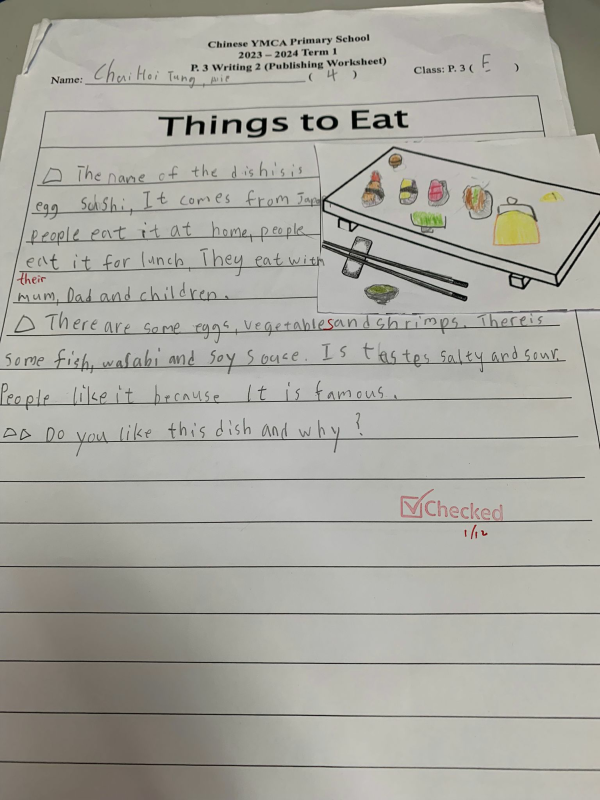 Chinese YMCA Primary School
2023 – 2024 Term 1
P. 3 Writing 2 (Publishing Worksheet)
Name: Choi Hoi Tung, ( 4 ) Class: P. 3 ( E )
Things to Eat
The name of the dish is is
egg sushi, It comes from Japa
people eat it at home, people
eat it for lunch, They eat with
their
mum, Dad and children.
There are some eggs, vegetables and shrimps. There is
some fish, wasabi and soy souce. Is tastes salty and sour.
People like it because It is famous.
Do you like this dish and why?
Checked
1/12